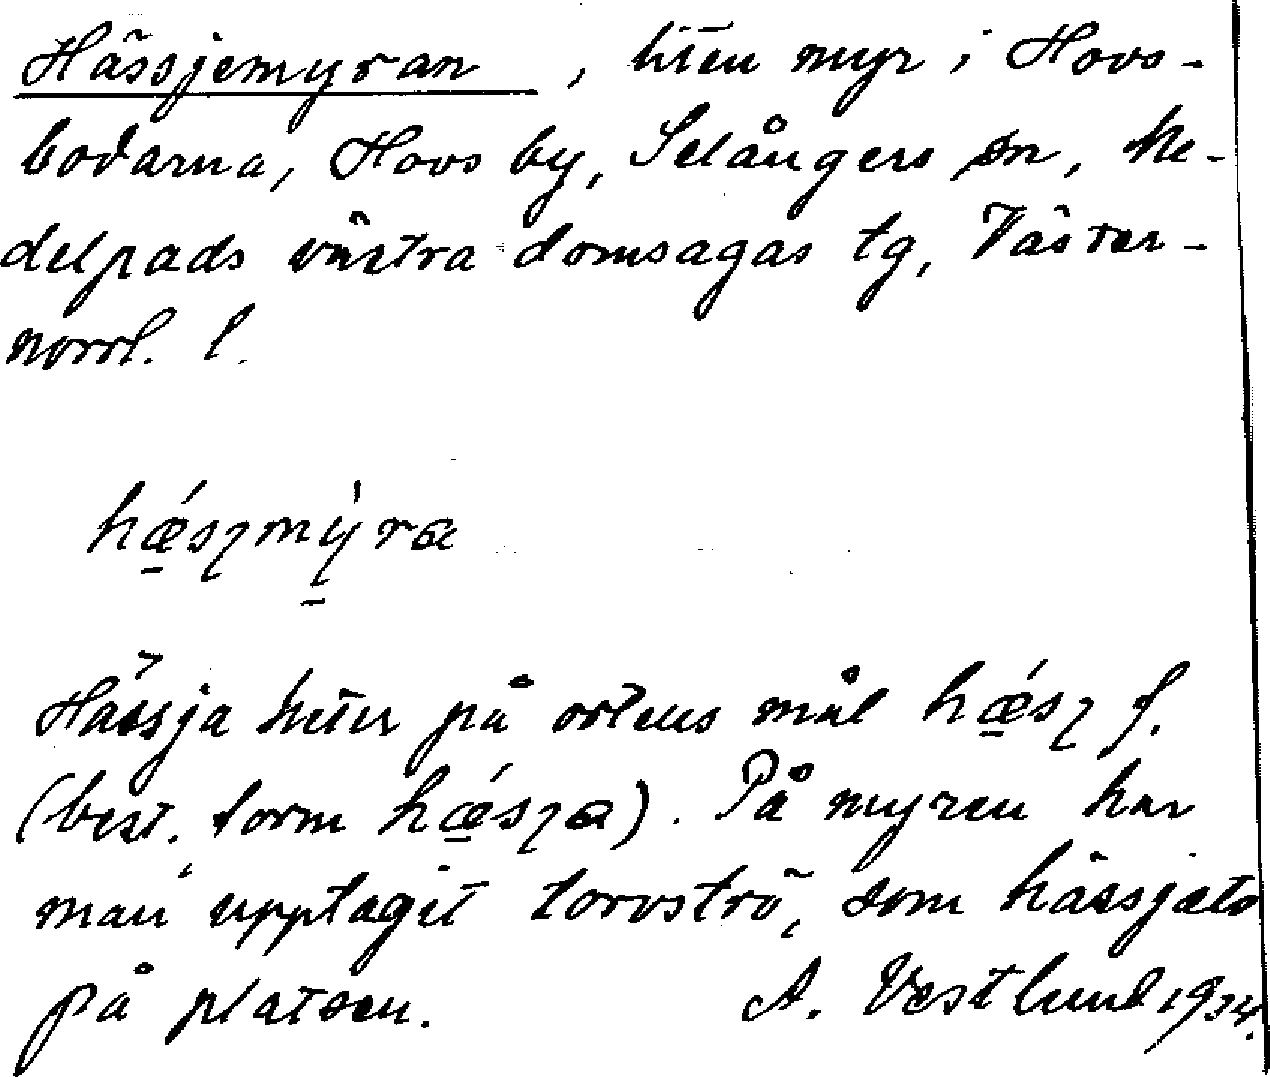 Hässjemyran, liten myr i Hovs-
bodarna, Hovs by, Selångers sn, Me-
delpads västra domsagas tg, Väster-
norrl. l.
hǽsʒmýra
Hässja heter på ortens mål hǽsʒ f.
(best. form hǽsʒa). På myren har
man upptagit torvströ, som hässjats
på platsen. A. Vestlund